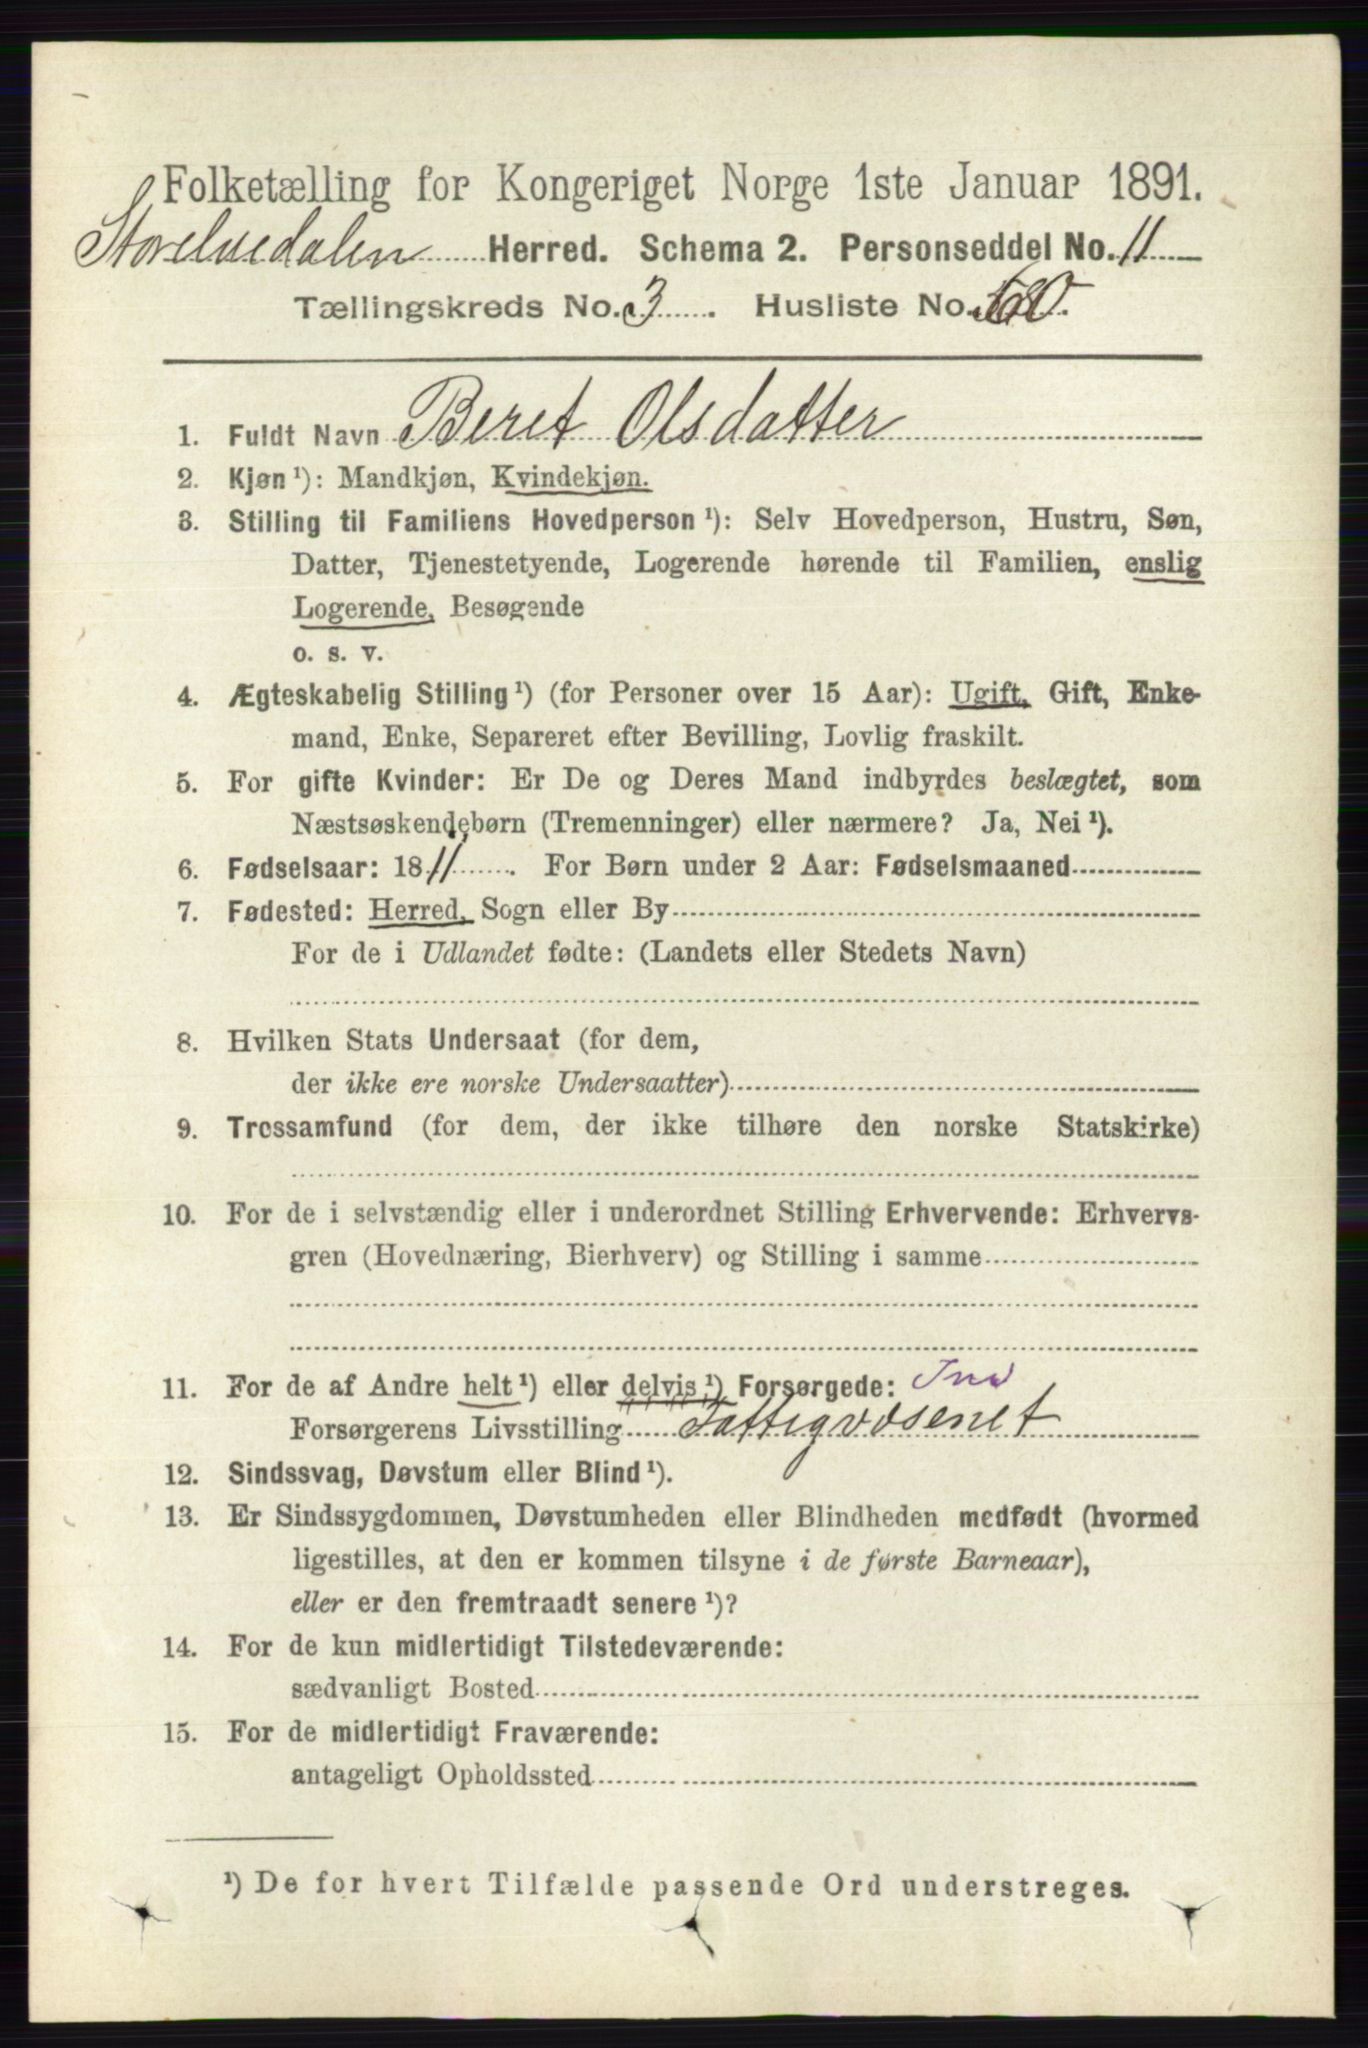 Folketælling for Kongeriget Norge 1ste Januar 1891.
Storelvedalen Herred. Schema 2. Personseddel No. 11
Tællingskreds No. 3. Husliste No.
1. Fuldt Navn Beret Olsdatter
2. Kjøn ¹): Mandkjøn, Kvindekjøn.
3. Stilling til Familiens Hovedperson ¹): Selv Hovedperson, Hustru, Søn,
Datter, Tjenestetyende, Logerende hørende til Familien, enslig
Logerende, Besøgende
o. s. v.
4. Ægteskabelig Stilling ¹) (for Personer over 15 Aar): Ugift, Gift, Enke-
mand, Enke, Separeret efter Bevilling, Lovlig fraskilt.
5. For gifte Kvinder: Er De og Deres Mand indbyrdes beslægtet, som
Næstsøskendebørn (Tremenninger) eller nærmere? Ja, Nei ¹).
6. Fødselsaar: 1811. For Børn under 2 Aar: Fødselsmaaned
7. Fødested: Herred, Sogn eller By
For de i Udlandet fødte: (Landets eller Stedets Navn)
8. Hvilken Stats Undersaat (for dem,
der ikke ere norske Undersaatter)
9. Trossamfund (for dem, der ikke tilhøre den norske Statskirke)
10. For de i selvstændig eller i underordnet Stilling Erhvervende: Erhvervs-
gren (Hovednæring, Bierhverv) og Stilling i samme
11. For de af Andre helt ¹) eller delvis ¹) Forsørgede:
Forsørgerens Livsstilling Fattigvæsenet
12. Sindssvag, Døvstum eller Blind ¹).
13. Er Sindssygdommen, Døvstumheden eller Blindheden medfødt (hvormed
ligestilles, at den er kommen tilsyne i de første Barneaar),
eller er den fremtraadt senere ¹)?
14. For de kun midlertidigt Tilstedeværende:
sædvanligt Bosted
15. For de midlertidigt Fraværende:
antageligt Opholdssted
¹) De for hvert Tilfælde passende Ord understreges.